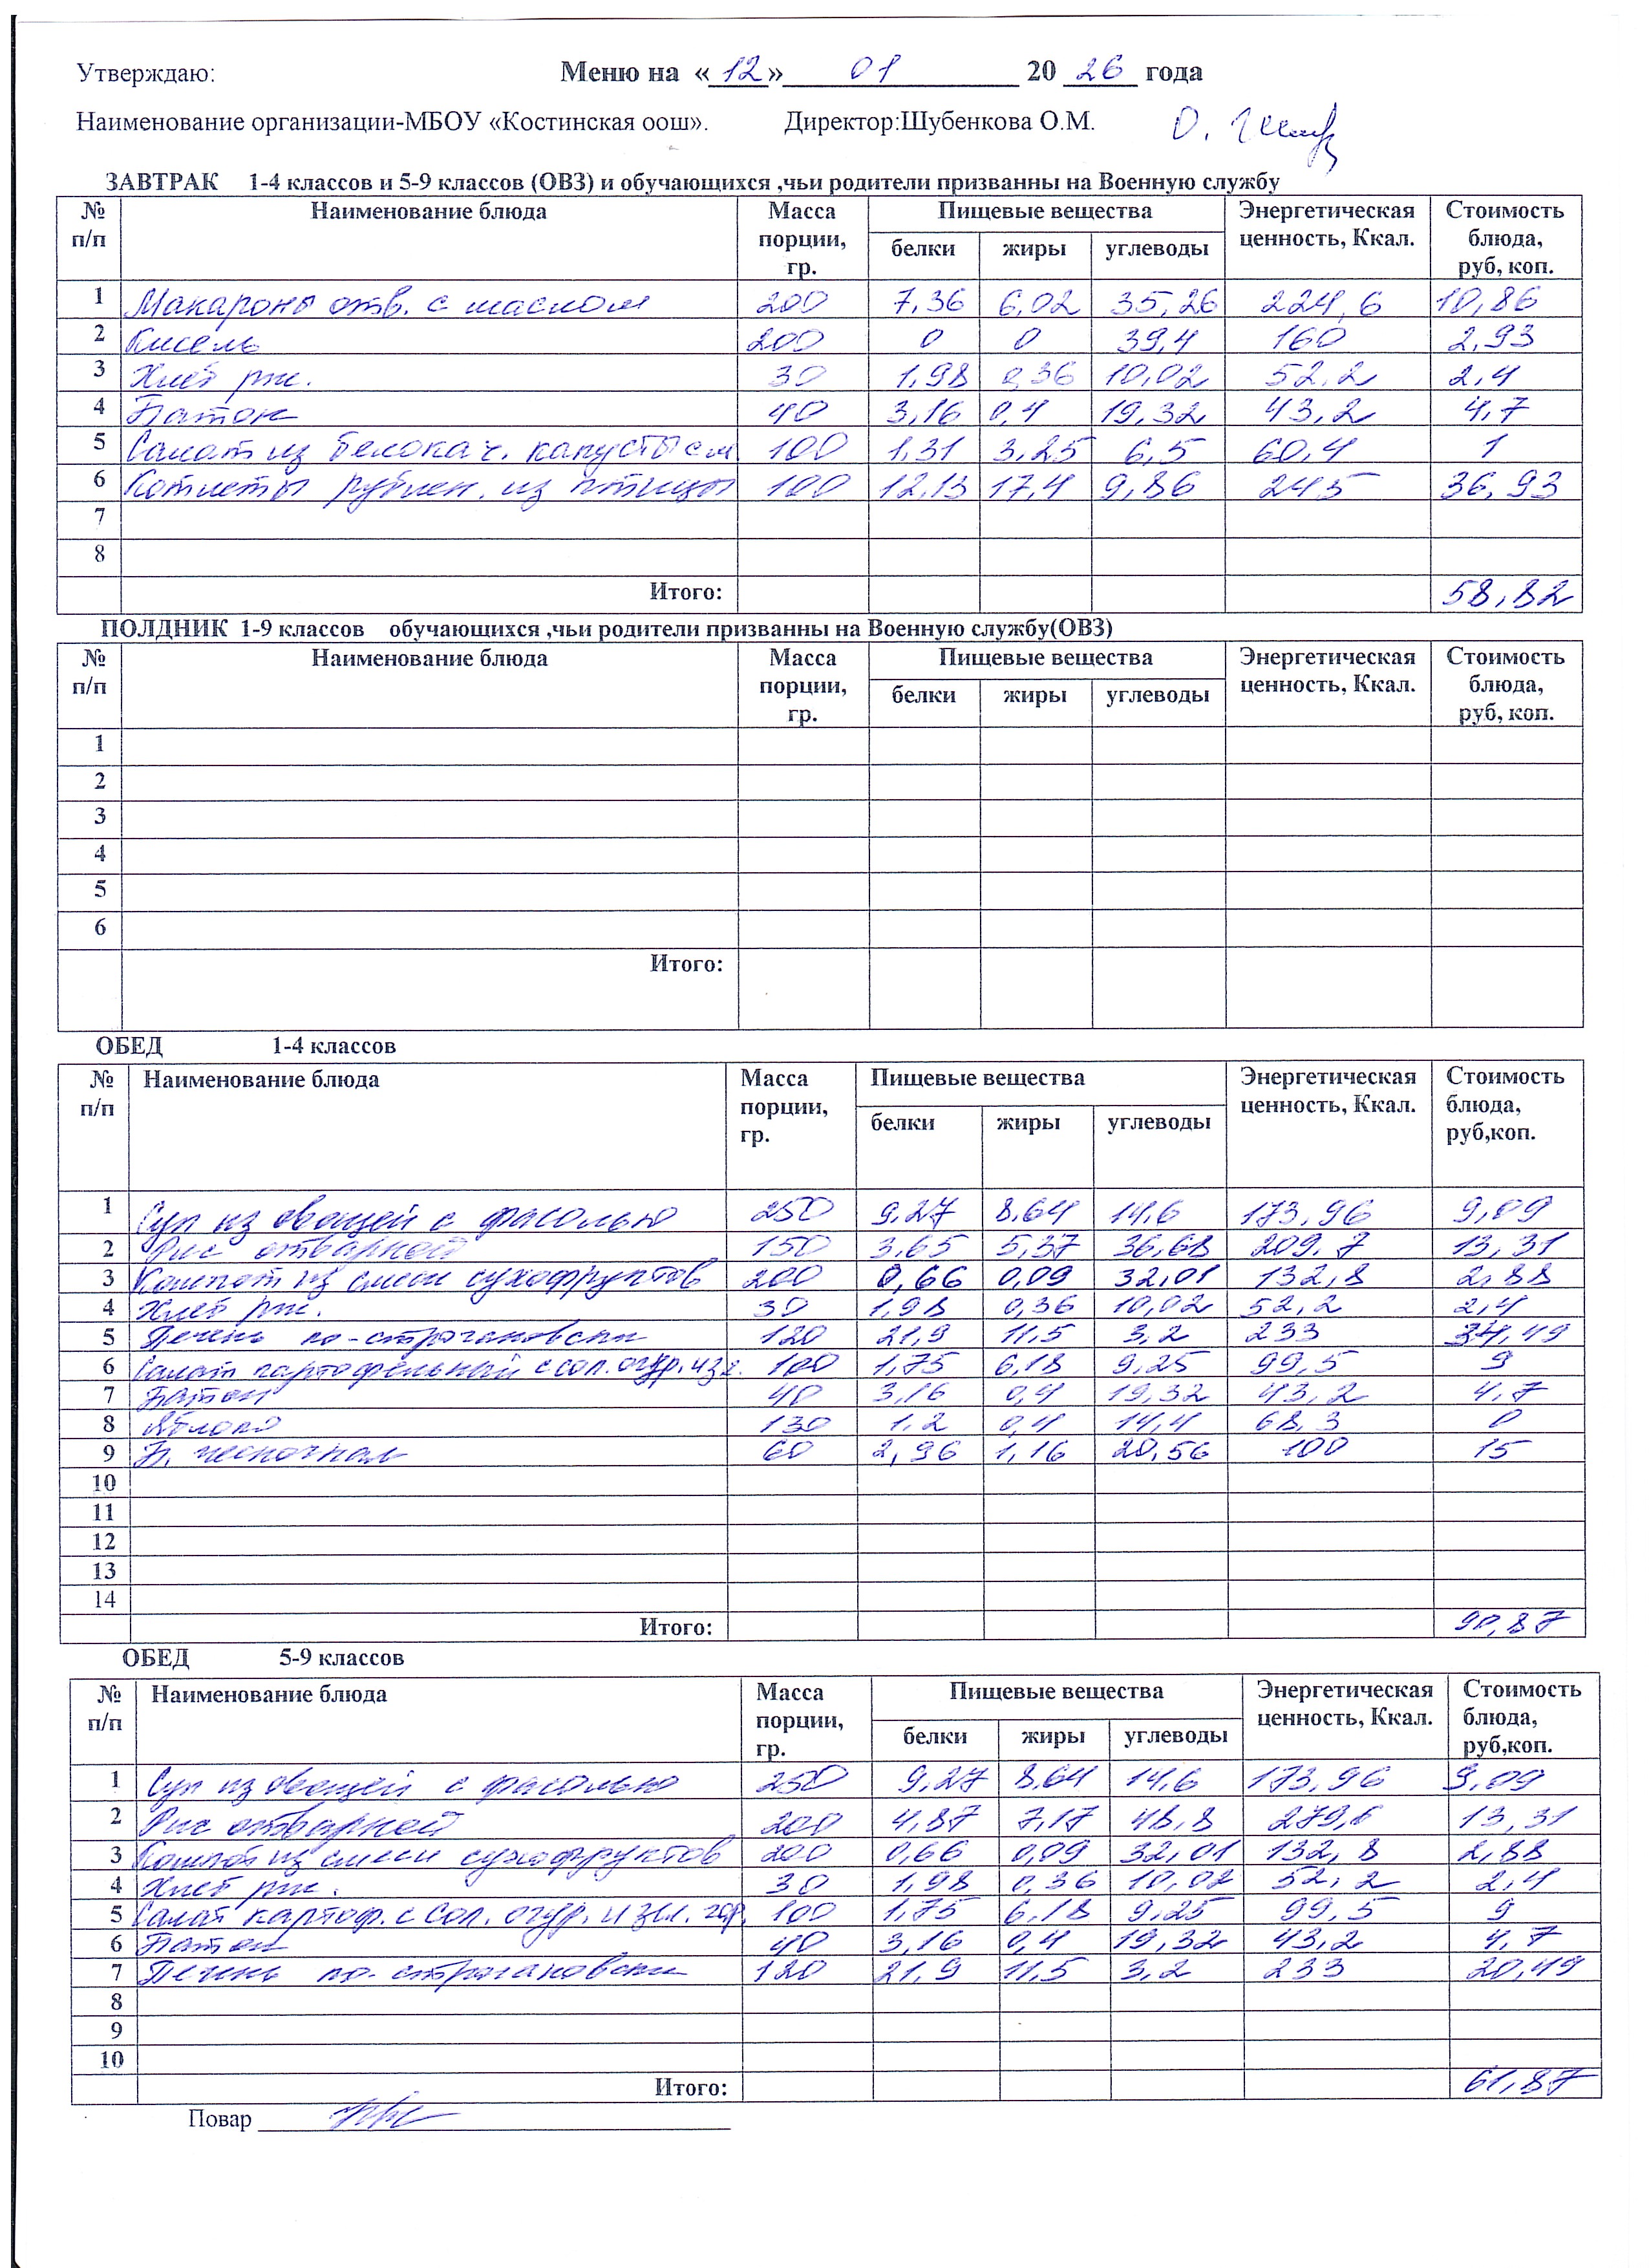 Утверждаю: Меню на «12» 01 2026 года
Наименование организации-МБОУ «Костинская оош». Директор:Шубенкова О.М.
ЗАВТРАК 1-4 классов и 5-9 классов (ОВЗ) и обучающихся ,чьи родители призванны на Военную службу
№ п/п Наименование блюда Масса порции, гр. Пищевые вещества Энергетическая ценность, Ккал. Стоимость блюда, руб, коп.
белки жиры углеводы
1 Макароны отв. с маслом 200 7,36 6,02 35,26 224,6 10,86
2 Кисель 200 0 0 39,4 160 2,93
3 Хлеб рж. 30 1,98 0,36 10,02 52,2 2,4
4 Батон 40 3,16 0,4 19,32 43,2 4,7
5 Салат из белокач. капусты с м 100 1,31 3,25 6,5 60,4 1
6 Котлеты рублен. из птицы 100 12,13 17,4 9,86 245 36,93
7
8
Итого: 58,82
ПОЛДНИК 1-9 классов обучающихся ,чьи родители призванны на Военную службу(ОВЗ)
№ п/п Наименование блюда Масса порции, гр. Пищевые вещества Энергетическая ценность, Ккал. Стоимость блюда, руб, коп.
белки жиры углеводы
1
2
3
4
5
6
Итого:
ОБЕД 1-4 классов
№ п/п Наименование блюда Масса порции, гр. Пищевые вещества Энергетическая ценность, Ккал. Стоимость блюда, руб,коп.
белки жиры углеводы
1 Суп из овощей с фасолью 250 9,27 8,64 14,6 173,96 9,09
2 Рис отварной 150 3,65 5,37 36,68 209,7 13,31
3 Компот из смеси сухофруктов 200 0,66 0,09 32,01 132,8 2,88
4 Хлеб рж. 30 1,98 0,36 10,02 52,2 2,4
5 Печень по-строгановски 120 21,9 11,5 3,2 233 34,49
6 Салат картофельный с сол. огур. и з 100 1,75 6,18 9,25 99,5 9
7 Батон 40 3,16 0,4 19,32 43,2 4,7
8 Яблоко 130 1,2 0,4 14,4 68,3 0
9 Б. чесночная 60 2,96 1,16 20,56 100 15
10
11
12
13
14
Итого: 90,87
ОБЕД 5-9 классов
№ п/п Наименование блюда Масса порции, гр. Пищевые вещества Энергетическая ценность, Ккал. Стоимость блюда, руб,коп.
белки жиры углеводы
1 Суп из овощей с фасолью 250 9,27 8,64 14,6 173,96 9,09
2 Рис отварной 200 4,87 7,17 48,8 279,6 13,31
3 Компот из смеси сухофруктов 200 0,66 0,09 32,01 132,8 2,88
4 Хлеб рж. 30 1,98 0,36 10,02 52,2 2,4
5 Салат картоф. с сол. огур. и зел. гор. 100 1,75 6,18 9,25 99,5 9
6 Батон 40 3,16 0,4 19,32 43,2 4,7
7 Печень по-строгановски 120 21,9 11,5 3,2 233 20,49
8
9
10
Итого: 61,87
Повар